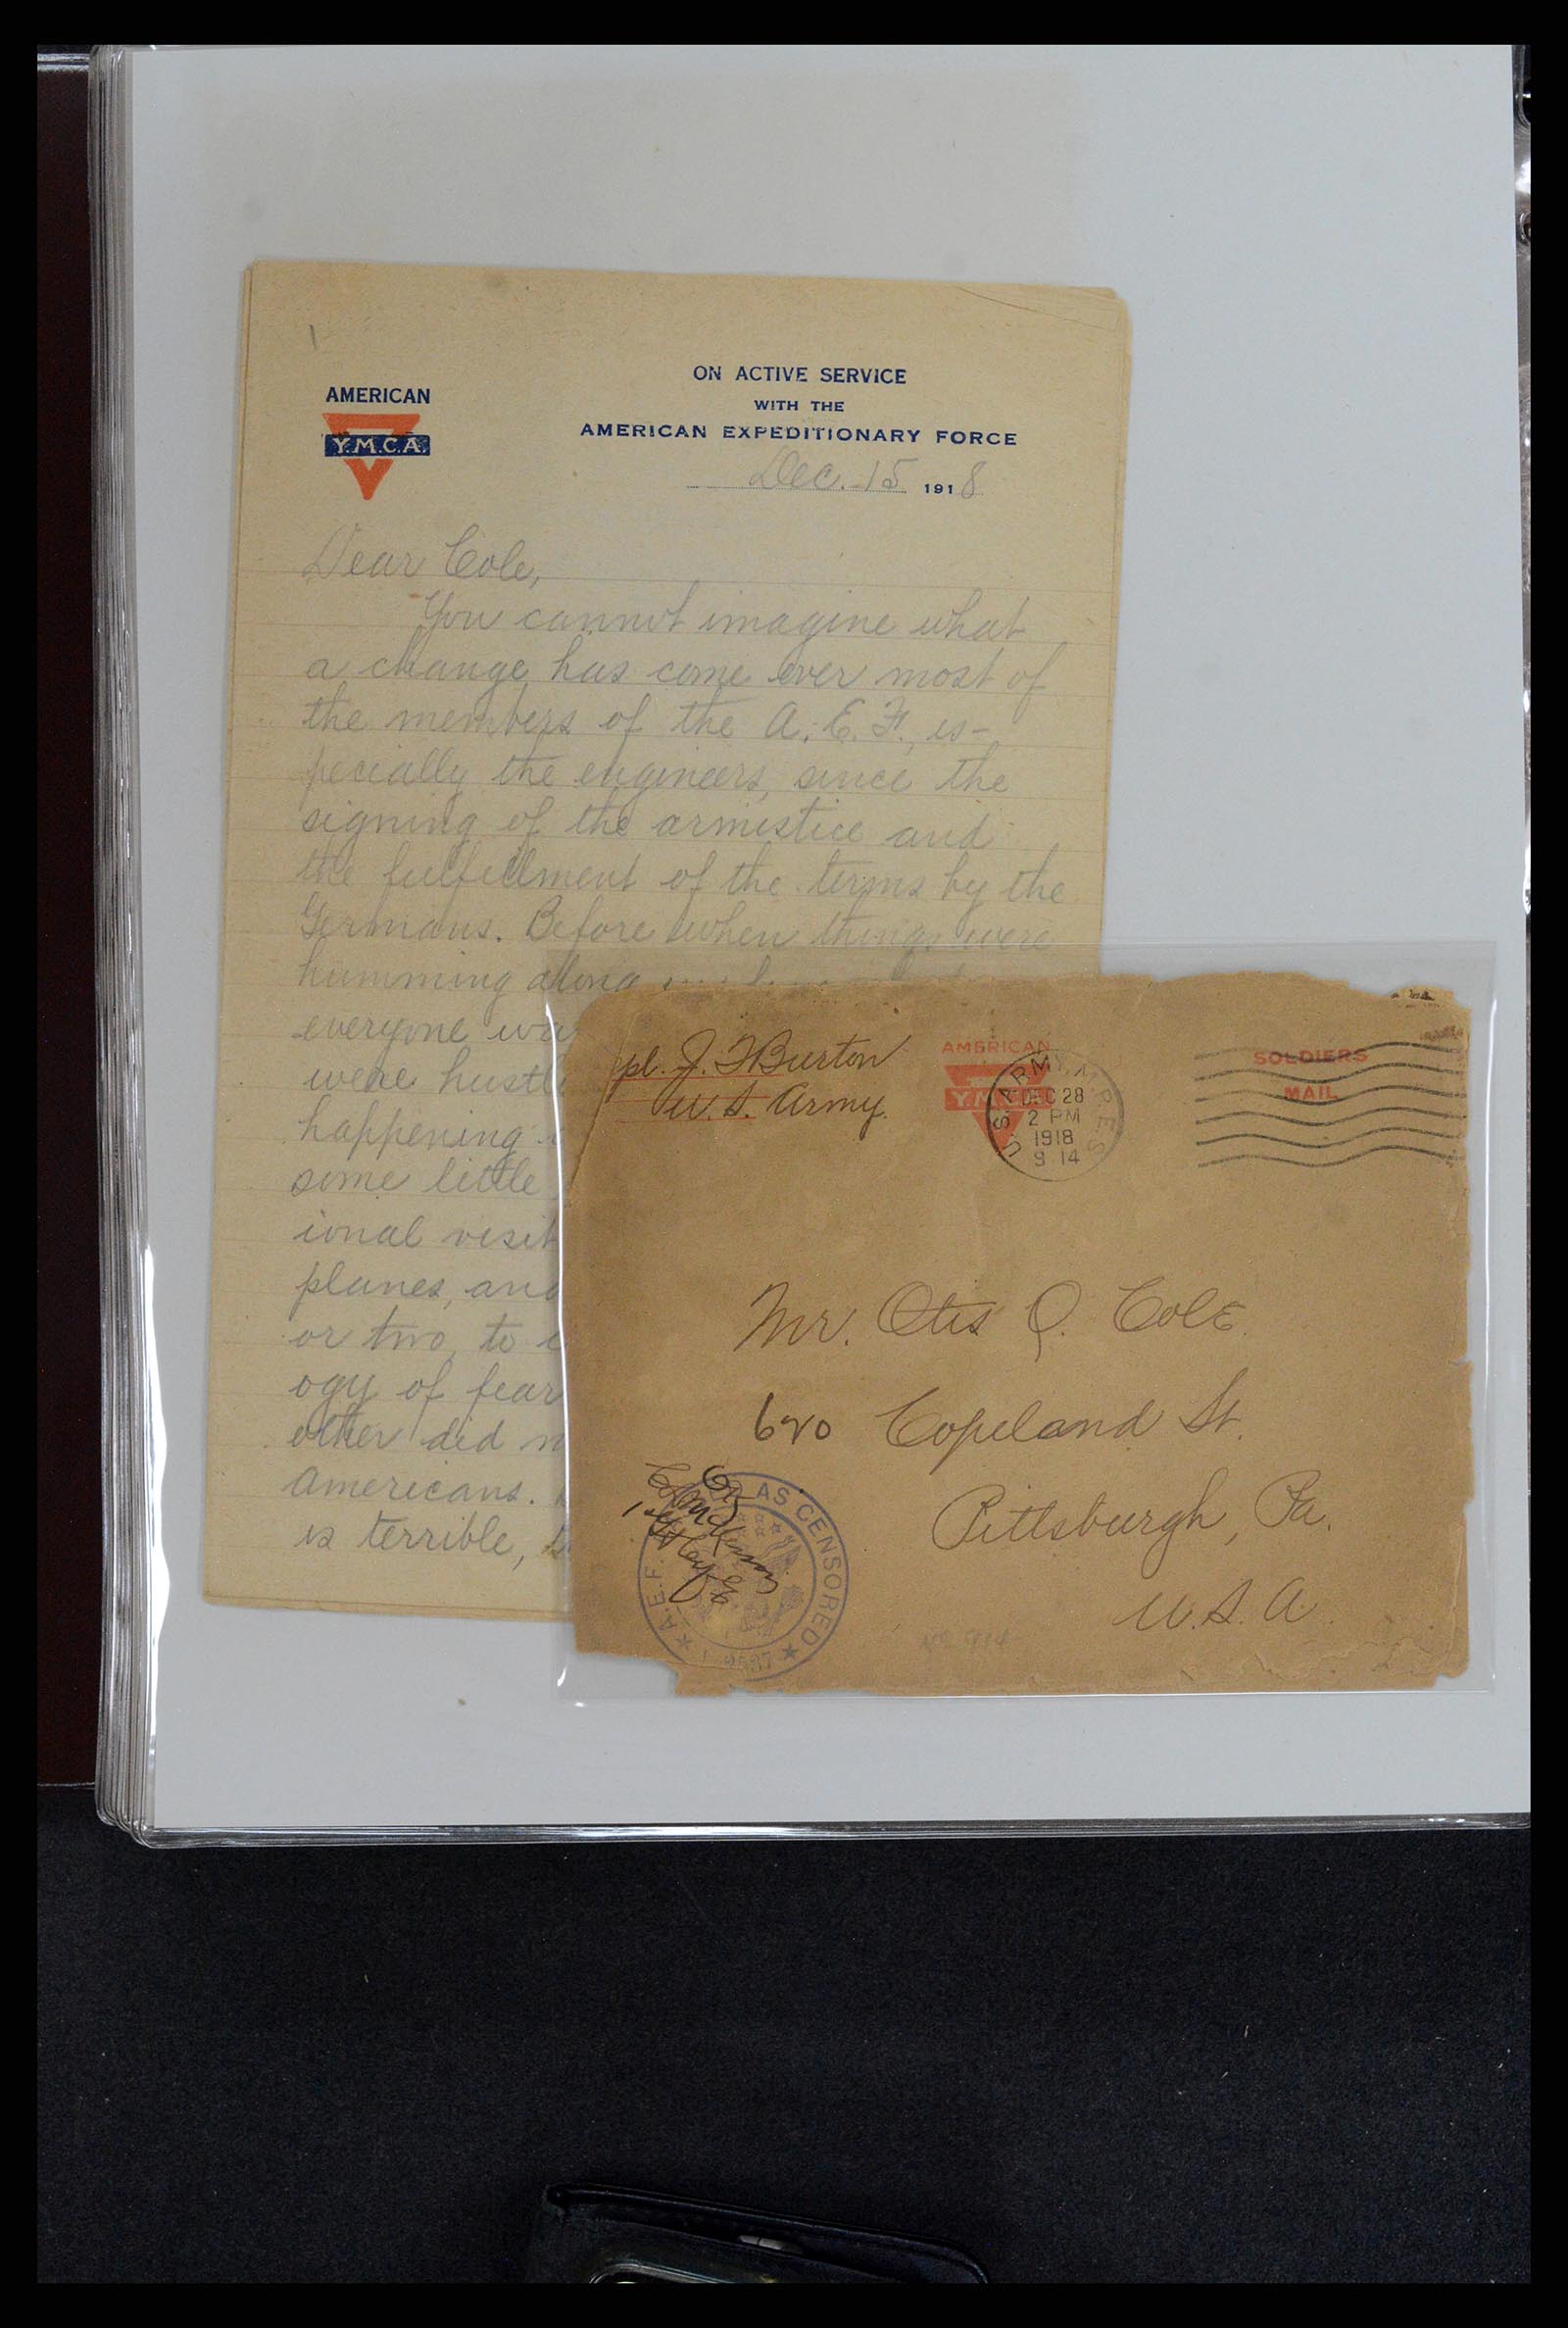 AMERICAN
Y.M.C.A.
ON ACTIVE SERVICE
WITH THE
AMERICAN EXPEDITIONARY FORCE
Dec. 15 1918
Dear Cole,
You cannot imagine what
a change has come over most of
the members of the A. E. F., es-
pecially the engineers, since the
signing of the armistice and
the fulfillment of the terms by the
Germans. Before when things were
humming along
everyone
were hustl
happening
some little
ional visit
planes, and
or two, to
ogy of fear
other did
Americans.
is terrible,
pl. J. F Burton
U. S. Army.
AMERICAN
Y.M.C.A.
U.S. ARMY M.P.E.S.
DEC 28
2 PM
1918
914
SOLDIERS
MAIL
Mr. Otis Q. Cole
620 Copeland St.
Pittsburgh, Pa.
U. S. A.
AS CENSORED
A.E.F.